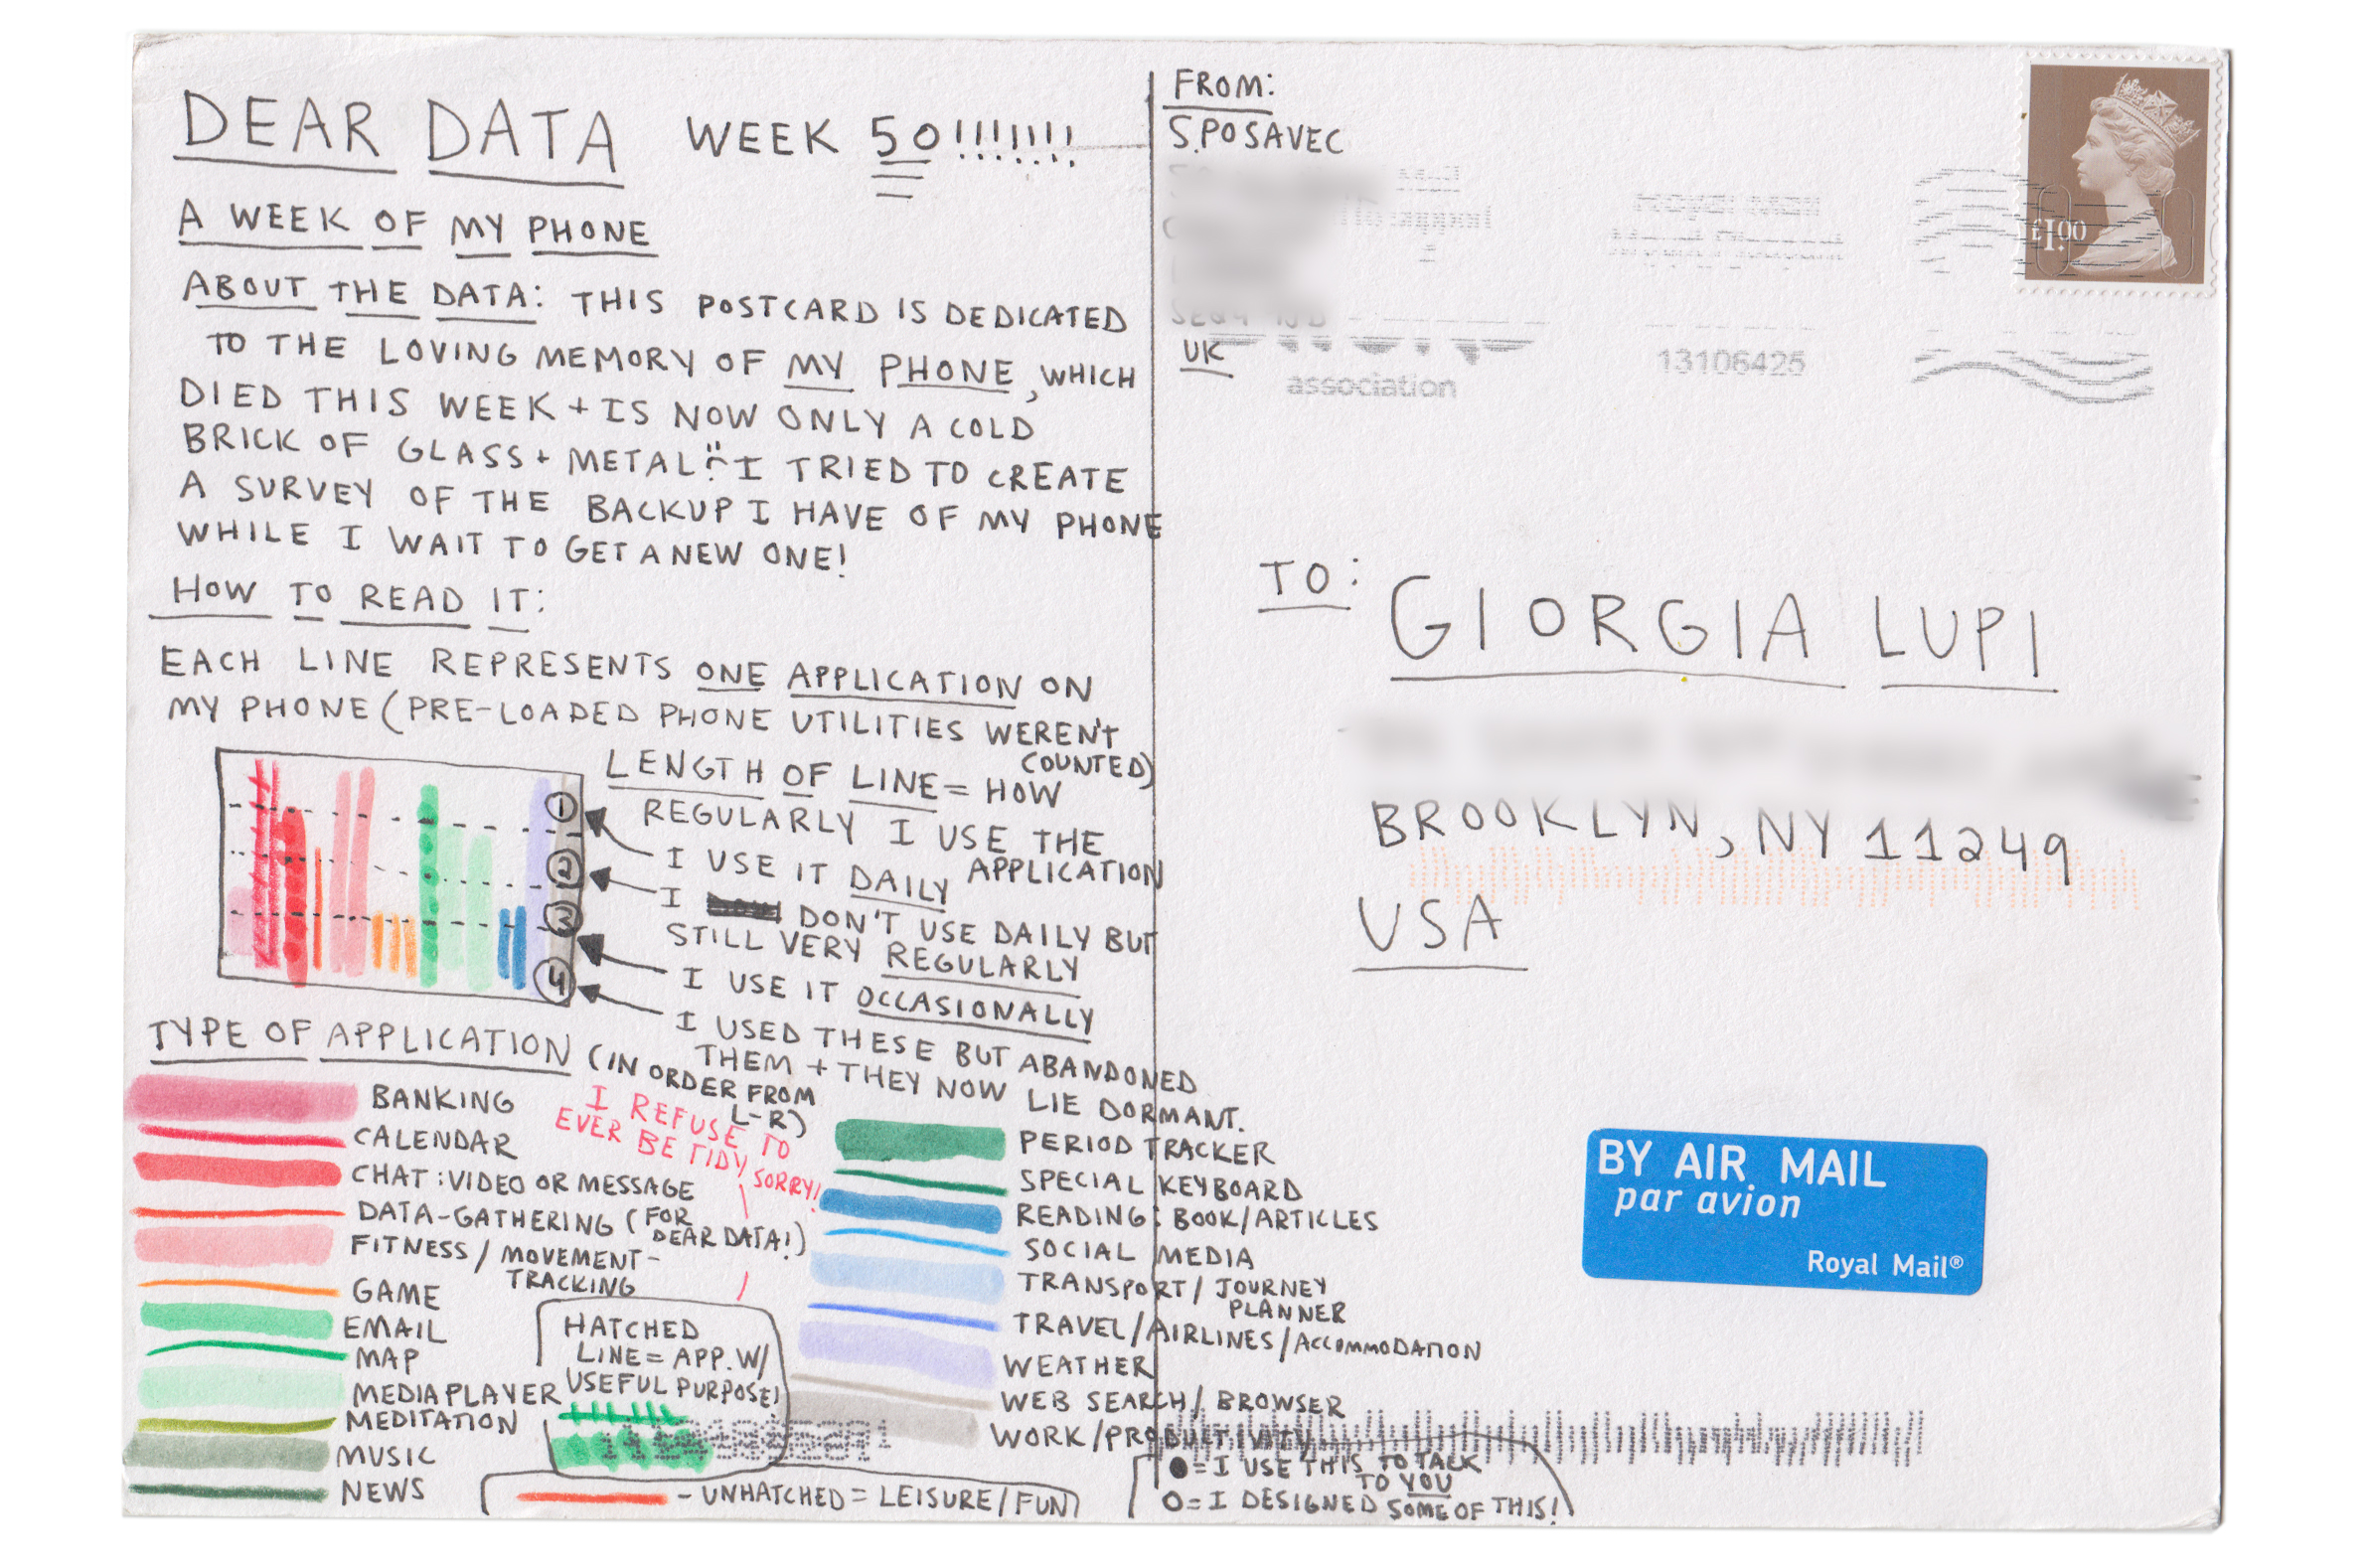 DEAR DATA WEEK 50!!!!!!!
A WEEK OF MY PHONE
ABOUT THE DATA: THIS POSTCARD IS DEDICATED
TO THE LOVING MEMORY OF MY PHONE, WHICH
DIED THIS WEEK + IS NOW ONLY A COLD
BRICK OF GLASS + METAL :( I TRIED TO CREATE
A SURVEY OF THE BACKUP I HAVE OF MY PHONE
WHILE I WAIT TO GET A NEW ONE!
HOW TO READ IT:
EACH LINE REPRESENTS ONE APPLICATION ON
MY PHONE (PRE-LOADED PHONE UTILITIES WEREN'T
COUNTED)
LENGTH OF LINE = HOW
REGULARLY I USE THE
APPLICATION
1
I USE IT DAILY
2
I DON'T USE DAILY BUT
STILL VERY REGULARLY
3
I USE IT OCCASIONALLY
4
I USED THESE BUT ABANDONED
THEM + THEY NOW LIE DORMANT.
TYPE OF APPLICATION (IN ORDER FROM
L-R)
I REFUSE TO
EVER BE TIDY, SORRY!
BANKING
CALENDAR
CHAT: VIDEO OR MESSAGE
DATA-GATHERING (FOR
DEAR DATA!)
FITNESS / MOVEMENT-
TRACKING
GAME
EMAIL
MAP
MEDIA PLAYER
MEDITATION
MUSIC
NEWS
HATCHED
LINE = APP. W/
USEFUL PURPOSE!
- UNHATCHED = LEISURE/FUN
PERIOD TRACKER
SPECIAL KEYBOARD
READING: BOOK/ARTICLES
SOCIAL MEDIA
TRANSPORT / JOURNEY
PLANNER
TRAVEL/AIRLINES/ACCOMMODATION
WEATHER
WEB SEARCH / BROWSER
WORK/PRODUCTIVITY
● = I USE THIS TO TALK
TO YOU
O = I DESIGNED SOME OF THIS!
FROM:
S.POSAVEC
UK
association
13106425
£1.00
TO:
GIORGIA LUPI
BROOKLYN, NY 11249
USA
BY AIR MAIL
par avion
Royal Mail®